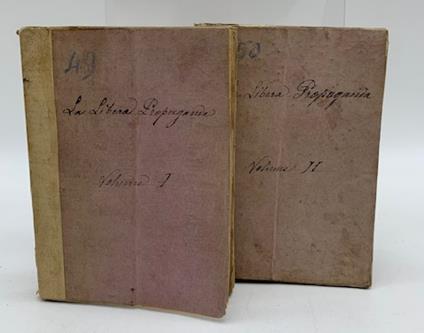 49
La Libera Propaganda
Volume I
50
Libera Propaganda
Volume II